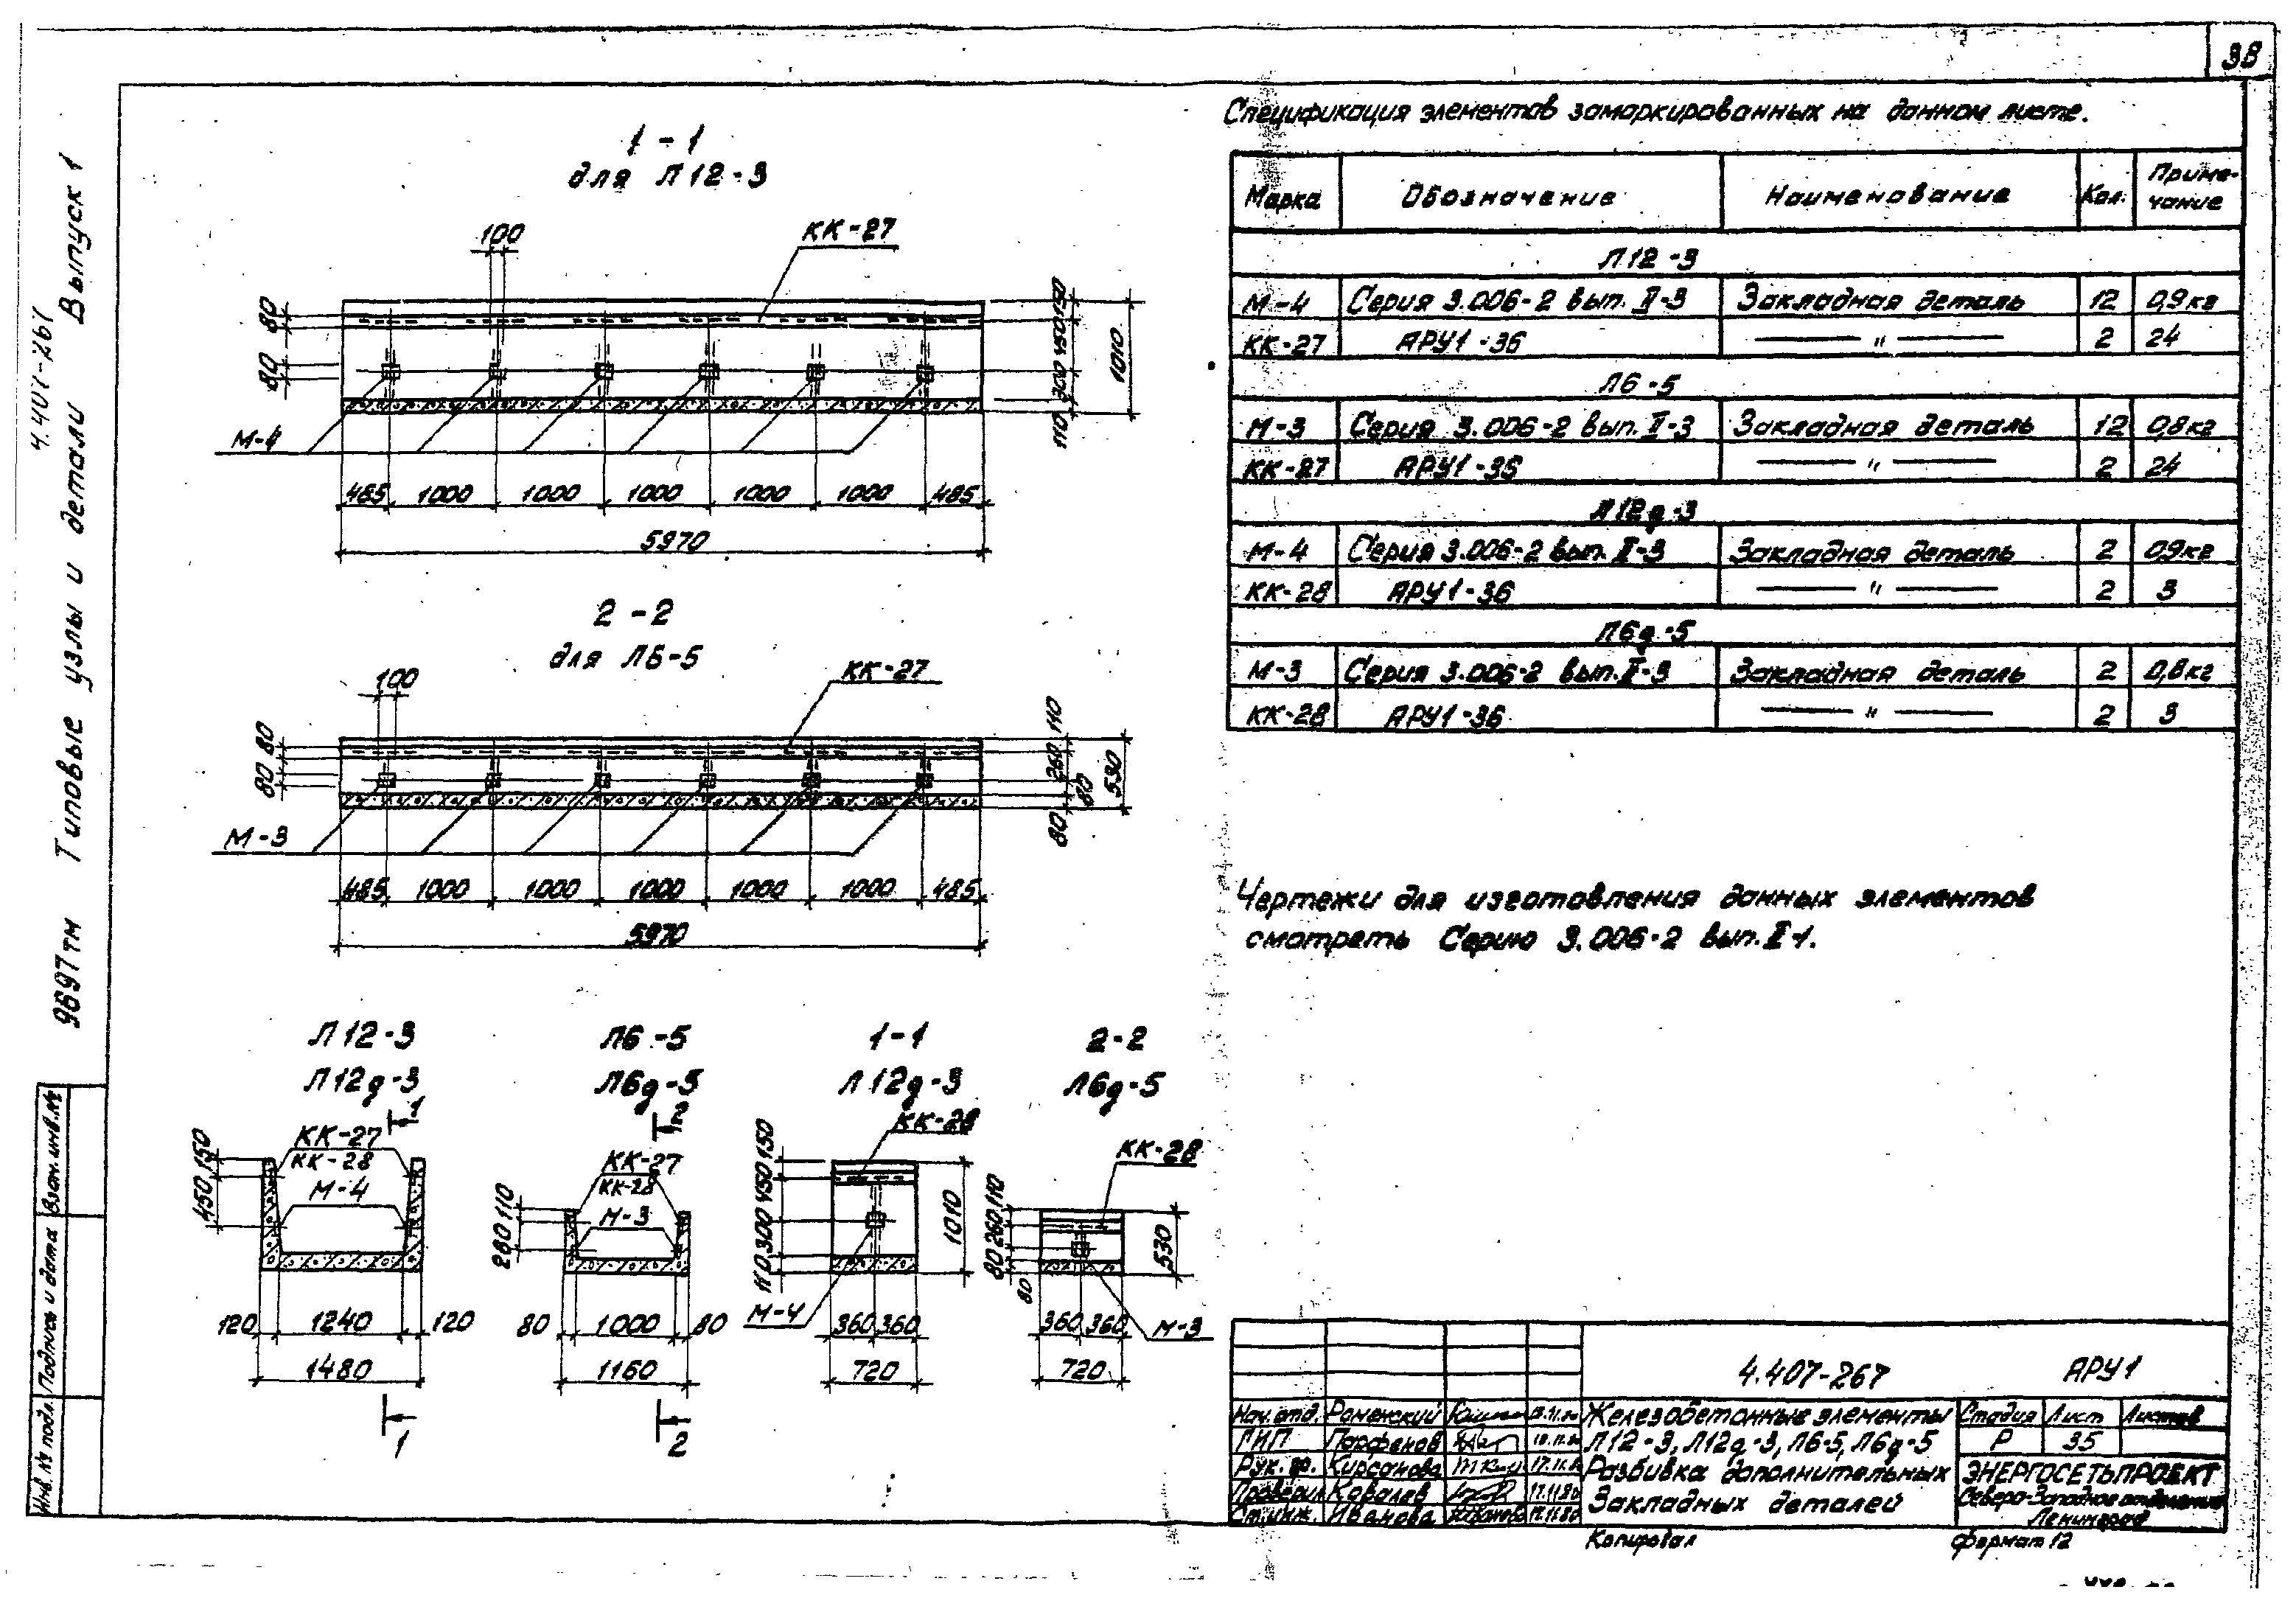 38
4.407-267
9697тм Типовые узлы и детали Выпуск 1
1 - 1
для Л12-3
100
КК-27
80
80
150
450
300
110
1010
М-4
485 1000 1000 1000 1000 1000 485
5970
2 - 2
для Л6-5
100
КК-27
80
80
110
260
80
80
530
М-3
485 1000 1000 1000 1000 1000 485
5970
Л12-3
Л12д-3
1
КК-27
КК-28
М-4
150
450
120 1240 120
1480
1
Л6-5
Л6д-5
2
КК-27
КК-28
М-3
110
280
80 1000 80
1160
2
1-1
Л12д-3
КК-28
150
450
300
110
1010
М-4
360 360
720
2-2
Л6д-5
КК-28
110
260
80
80
530
360 360
М-3
720
Спецификация элементов замаркированных на данном листе.
Марка Обозначение Наименование Кол. Приме-
чание
Л12-3
М-4 Серия 3.006-2 вып. II-3 Закладная деталь 12 0,9кг
КК-27 АРУ1-36 — " — 2 24
Л6-5
М-3 Серия 3.006-2 вып. II-3 Закладная деталь 12 0,8кг
КК-27 АРУ1-36 — " — 2 24
Л12д-3
М-4 Серия 3.006-2 вып. II-3 Закладная деталь 2 0,9кг
КК-28 АРУ1-36 — " — 2 3
Л6д-5
М-3 Серия 3.006-2 вып. II-3 Закладная деталь 2 0,8кг
КК-28 АРУ1-36 — " — 2 3
Чертежи для изготовления данных элементов
смотреть Серию 3.006-2 вып. II-1.
4.407-267 АРУ1
Нач. отд. Роменский
ГИП Парфенов
Рук. гр. Кирсанова 17.11.80
Проверил Ковалев 17.11.80
Ст. инж. Иванова 17.11.80
Железобетонные элементы
Л12-3, Л12д-3, Л6-5, Л6д-5
Разбивка дополнительных
закладных деталей
Стадия Лист Листов
Р 35
ЭНЕРГОСЕТЬПРОЕКТ
Северо-Западное отделение
Ленинград
Копировал Формат 12
Инв. № подл. Подпись и дата Взам. инв. №